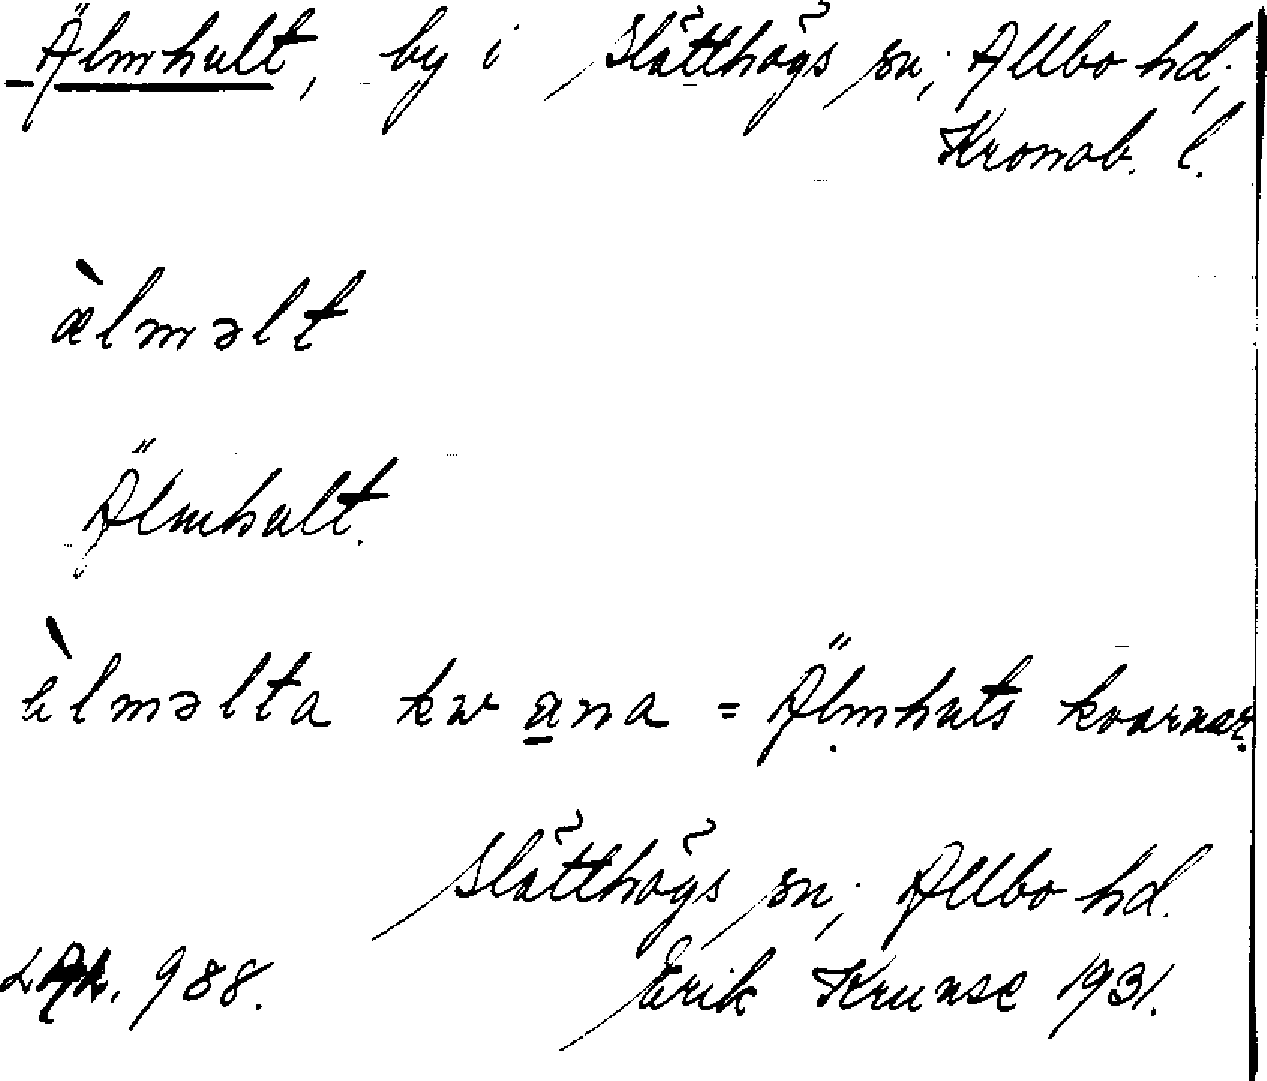 Älmhult, by i Slätthögs sn; Allbo hd;
Kronob. l.
æ̀lməlt
Älmhult.
æ̀lməlta kwana = Älmhuts kvarnar.
Slätthögs sn; Allbo hd.
988. Erik Krunse 1931.